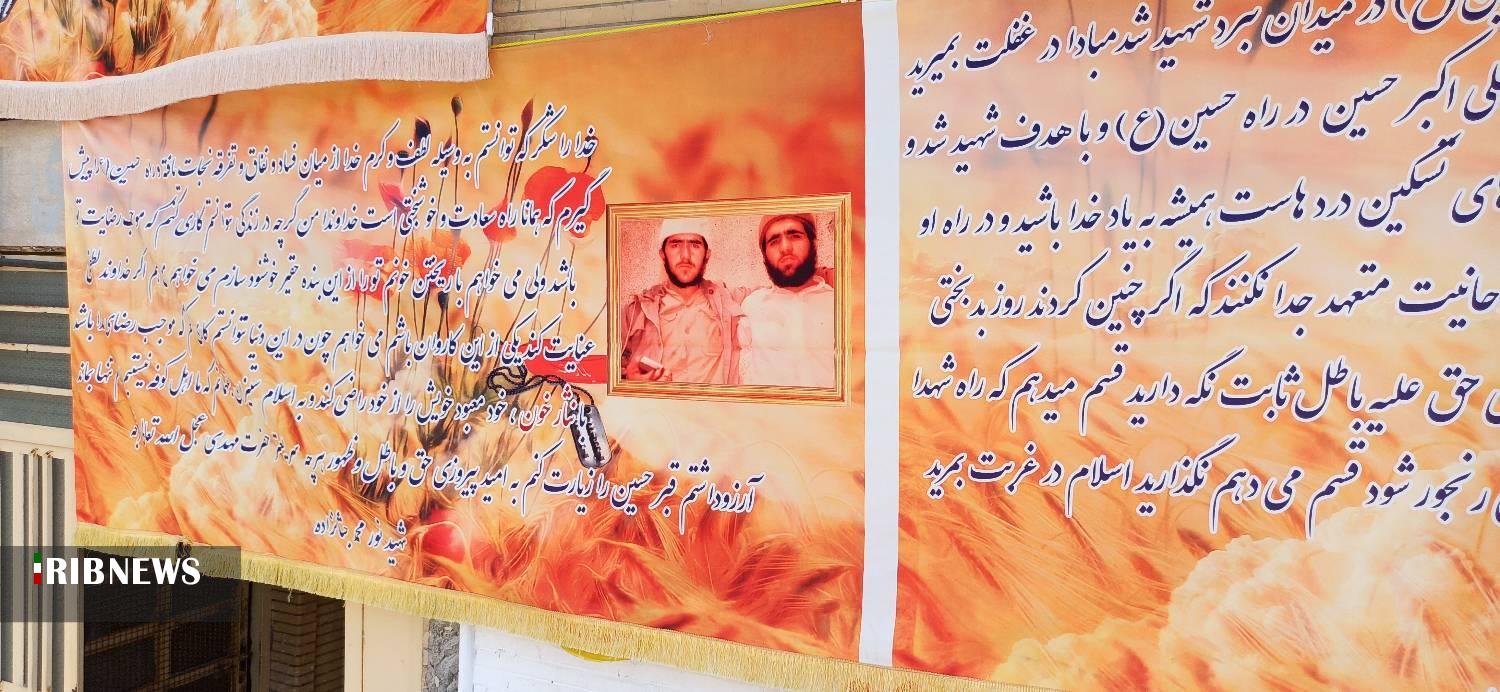 در میدان نبرد شهید شد مبادا در غفلت بمیرید
علی اکبر حسین در راه حسین(ع) و با هدف شهید شد و
تسکین درد هاست همیشه به یاد خدا باشید و در راه او
متعهد جدا نکنند که اگر چنین کردند روز بدبختی
حق علیه باطل ثابت نگه دارید قسم میدهم که راه شهدا
رنجور شود قسم می دهم نگذارید اسلام در غربت بمیرد
خدا را شکر که توانستم به وسیله لطف و کرم خدا از میان فساد و نفاق و تفرقه نجات یافته در راه حسین(ع) را پیش
گیرم که همانا راه سعادت و خوشبختی است خداوندا من گرچه در زندگی نتوانستم کاری کنم که موجب رضایت تو
باشد ولی می خواهم با ریختن خونم تو را از این بنده حقیر خوشنود سازم می خواهم اگر خداوند لطف
عنایت کند یکی از این کاروان باشم می خواهم چون در این دنیا نتوانستم که موجب رضای خدا باشد
با نثار خون ، خود معبود خویش را از خود راضی کند و به اسلام که ما اهل کوفه نیستیم تنها بماند
آرزو داشتم قبر حسین را زیارت کنم به امید پیروزی حق و باطل و ظهور هر چه حضرت مهدی عجل الله تعالی
شهید نور محمد
IRIBNEWS